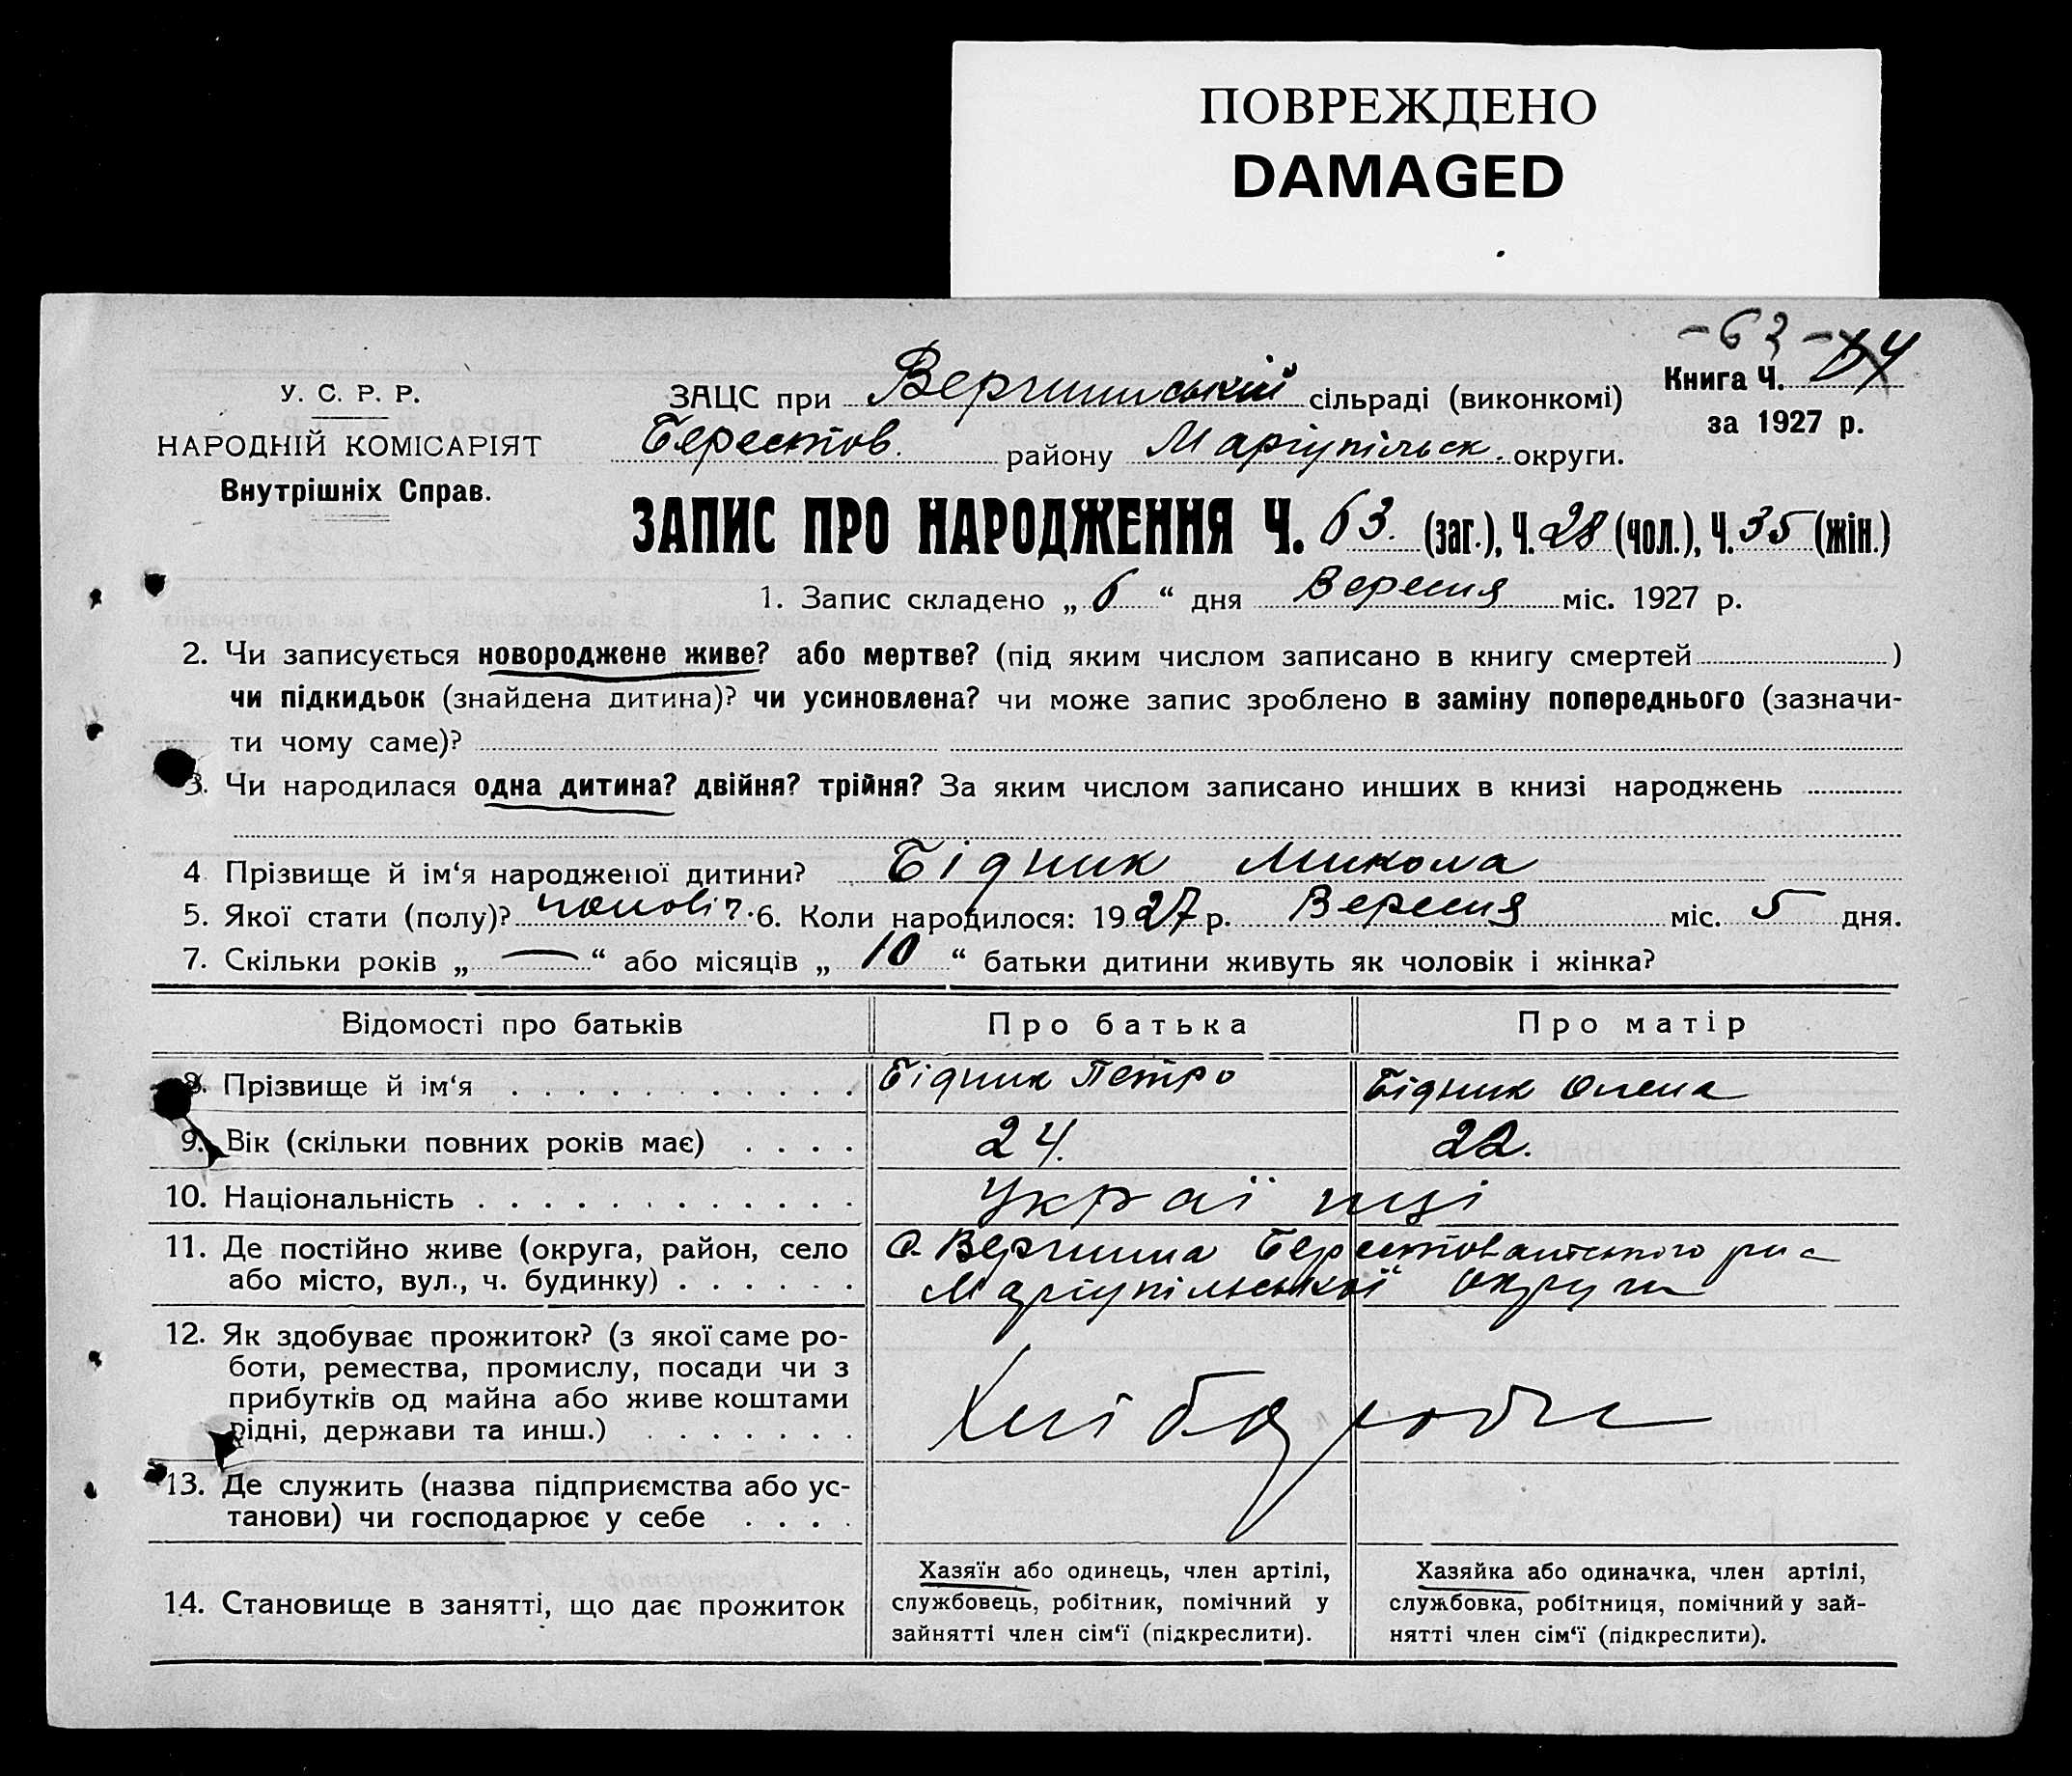 ПОВРЕЖДЕНО
DAMAGED
-63-
У. С. Р. Р.
НАРОДНІЙ КОМІСАРІЯТ
Внутрішніх Справ.
ЗАЦС при сільраді (виконкомі)
Книга Ч.
за 1927 р.
Берестов. району Маріупільск. округи.
ЗАПИС ПРО НАРОДЖЕННЯ Ч. 63. (заг.), Ч. 28 (чол.), Ч. 35 (жін.)
1. Запис складено „ 6 “ дня Вересня міс. 1927 р.
2. Чи записується новороджене живе? або мертве? (під яким числом записано в книгу смертей )
чи підкидьок (знайдена дитина)? чи усиновлена? чи може запис зроблено в заміну попереднього (зазначи-
ти чому саме)?
3. Чи народилася одна дитина? двійня? трійня? За яким числом записано инших в книзі народжень
4 Прізвище й ім‘я народженої дитини? Бідник Микола
5. Якої стати (полу)? чоловіч. 6. Коли народилося: 1927 р. Вересня міс. 5 дня.
7. Скільки років „ — “ або місяців „ 10 “ батьки дитини живуть як чоловік і жінка?
Відомості про батьків Про батька Про матір
8. Прізвище й ім‘я . . . . . . . . . . . Бідник Петро Бідник Олена
9. Вік (скільки повних років має) . . . . 24. 22.
10. Національність . . . . . . . . . . . . . Українці
11. Де постійно живе (округа, район, село
або місто, вул., ч. будинку) . . . . . .
Маріупільської округи
12. Як здобуває прожиток? (з якої саме ро-
боти, ремества, промислу, посади чи з
прибутків од майна або живе коштами
рідні, держави та инш.) . . . . . . .
Хлібороби
13. Де служить (назва підприємства або ус-
танови) чи господарює у себе . . . .
14. Становище в занятті, що дає прожиток
Хазяїн або одинець, член артілі,
службовець, робітник, помічний у
зайнятті член сім‘ї (підкреслити).
Хазяйка або одиначка, член артілі,
службовка, робітниця, помічний у зай-
нятті член сім‘ї (підкреслити).